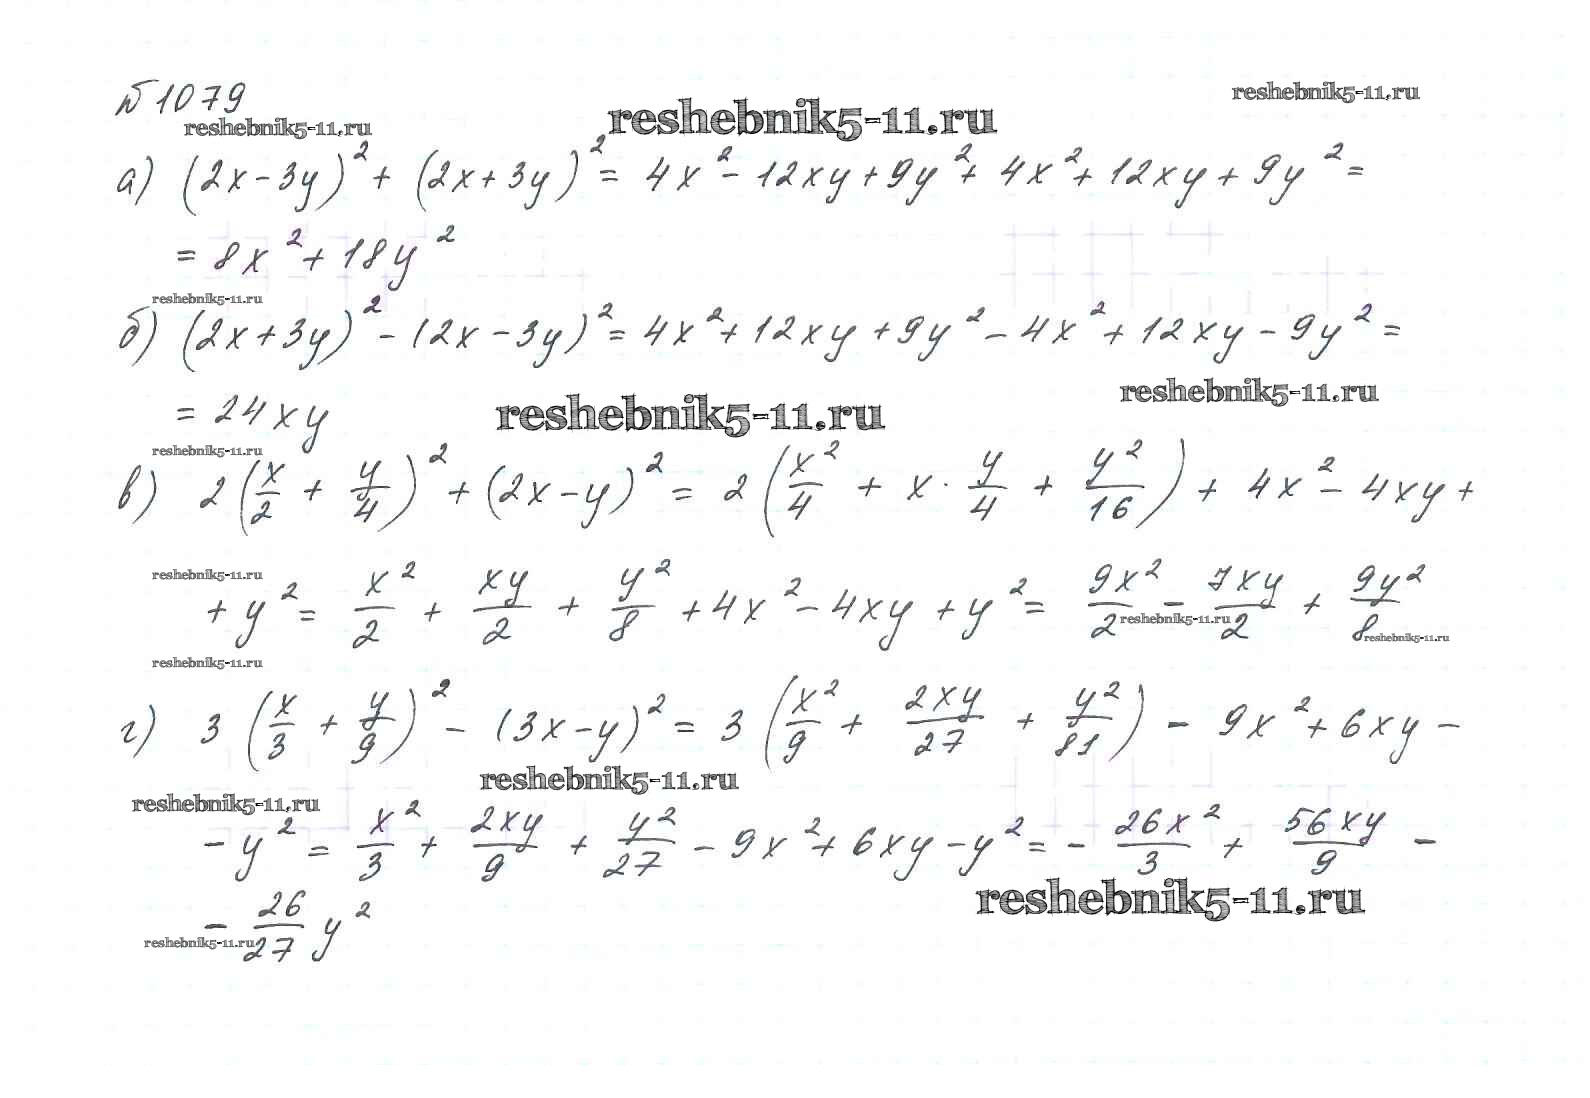 №1079
reshebnik5-11.ru
reshebnik5-11.ru
reshebnik5-11.ru
а) (2x-3y)² + (2x+3y)² = 4x² - 12xy + 9y² + 4x² + 12xy + 9y² =
= 8x² + 18y²
reshebnik5-11.ru
б) (2x+3y)² - (2x-3y)² = 4x² + 12xy + 9y² - 4x² + 12xy - 9y² =
= 24xy
reshebnik5-11.ru
reshebnik5-11.ru
reshebnik5-11.ru
в) 2(x/2 + y/4)² + (2x-y)² = 2(x²/4 + x·y/4 + y²/16) + 4x² - 4xy +
reshebnik5-11.ru
+ y² = x²/2 + xy/2 + y²/8 + 4x² - 4xy + y² = 9x²/2 - 7xy/2 + 9y²/8
reshebnik5-11.ru
reshebnik5-11.ru
reshebnik5-11.ru
г) 3(x/3 + y/9)² - (3x-y)² = 3(x²/9 + 2xy/27 + y²/81) - 9x² + 6xy -
reshebnik5-11.ru
reshebnik5-11.ru
- y² = x²/3 + 2xy/9 + y²/27 - 9x² + 6xy - y² = - 26x²/3 + 56xy/9 -
reshebnik5-11.ru
- 26/27 y²
reshebnik5-11.ru